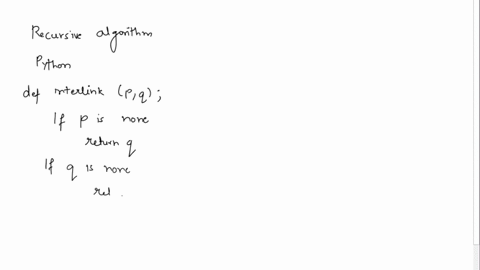 Recursive algorithm
Python
def nterlink (p,q) ;
If p is none
return q
If q is none
ret